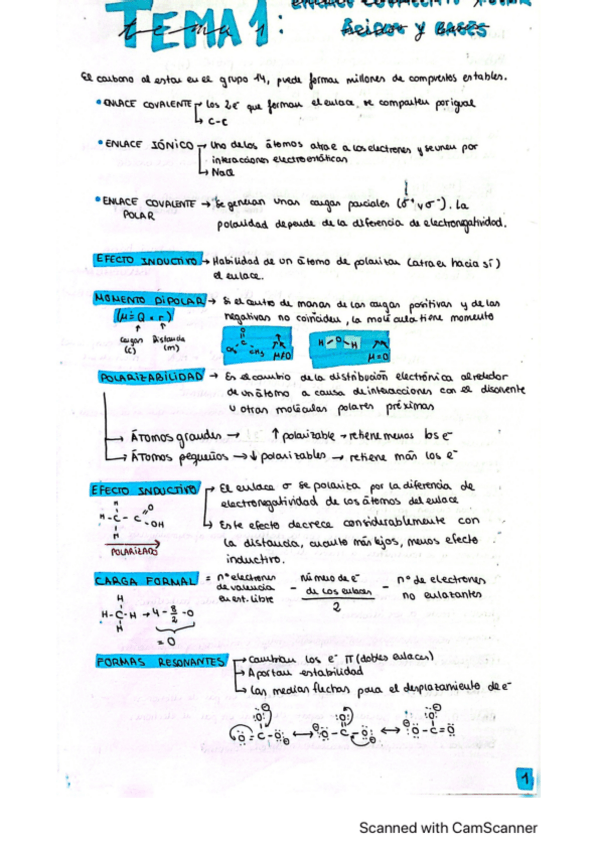 TEMA 1:
tema 1
ácidos y bases
El carbono al estar en el grupo 14, puede formar millones de compuestos estables.
• ENLACE COVALENTE → los 2e⁻ que forman el enlace, se comparten por igual
↳ C-C
• ENLACE IÓNICO → Uno de los átomos atrae a los electrones y se unen por
interacciones electroestáticas
→ NaCl
• ENLACE COVALENTE → Se generan unas cargas parciales (σ⁺ y σ⁻). La
POLAR polaridad depende de la diferencia de electronegatividad.
EFECTO INDUCTIVO → Habilidad de un átomo de polarizar (atraer hacia sí)
el enlace.
MOMENTO DIPOLAR → Si el centro de masas de las cargas positivas y de las
(μ = Q · r) negativas no coinciden, la molécula tiene momento
cargas Distancia
(c) (m)
O
C
CH₃ CH₃ μ≠0
H-O-H μ=0
POLARIZABILIDAD → Es el cambio de la distribución electrónica alrededor
de un átomo a causa de interacciones con el disolvente
u otras moléculas polares próximas
→ ÁTOMOS grandes → ↑ polarizable → retiene menos los e⁻
→ ÁTOMOS pequeños → ↓ polarizables → retiene más los e⁻
EFECTO INDUCTIVO → El enlace σ se polariza por la diferencia de
electronegatividad de los átomos del enlace
H
H-C-C=O
OH
H
POLARIZADO
↳ Este efecto decrece considerablemente con
la distancia, cuanto más lejos, menos efecto
inductivo.
CARGA FORMAL = nº electrones de valencia en est. libre - número de e⁻ de los enlaces / 2 - nº de electrones no enlazantes
H
H-C-H → 4 - 8/2 - 0
H
= 0
FORMAS RESONANTES → Cambian los e⁻ π (dobles enlaces)
→ Aportan estabilidad
→ Las medias flechas para el desplazamiento de e⁻
:O:⊖ :O: :O:⊖
O=C-O⊖ ↔ ⊖O-C-O⊖ ↔ ⊖O-C=O
1
Scanned with CamScanner